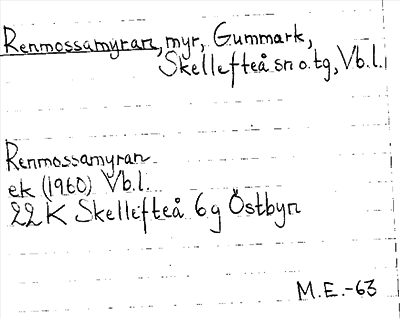 Renmossamyran, myr, Gummark,
Skellefteå sn o. tg, Vb.l.
Renmossamyran
ek (1960) Vb.l.
22 K Skellefteå 6g Östbyn
M.E.-63